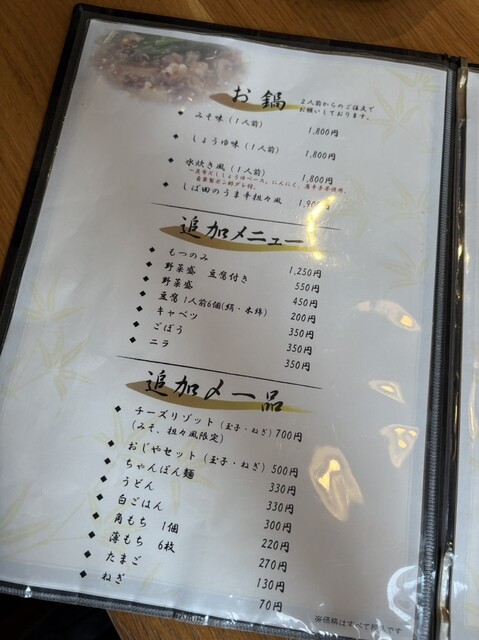 お鍋 2人前からのご注文で
お願いしております。
◆ みそ味(1人前) 1,800円
◆ しょうゆ味(1人前) 1,800円
◆ 水炊き風(1人前) 1,800円
◆ しば田のうま辛担々風 1,900円
追加メニュー
◆ もつのみ 1,250円
◆ 野菜盛 豆腐付き 550円
◆ 野菜盛 450円
◆ 豆腐1人前6個(絹・木綿) 200円
◆ キャベツ 350円
◆ ごぼう 350円
◆ ニラ 350円
追加〆一品
◆ チーズリゾット(玉子・ねぎ) 700円
(みそ、担々風限定)
◆ おじやセット(玉子・ねぎ) 500円
◆ ちゃんぽん麺 330円
◆ うどん 330円
◆ 白ごはん 300円
◆ 角もち 1個 220円
◆ 薄もち 6枚 270円
◆ たまご 130円
◆ ねぎ 70円
※価格はすべて税込です